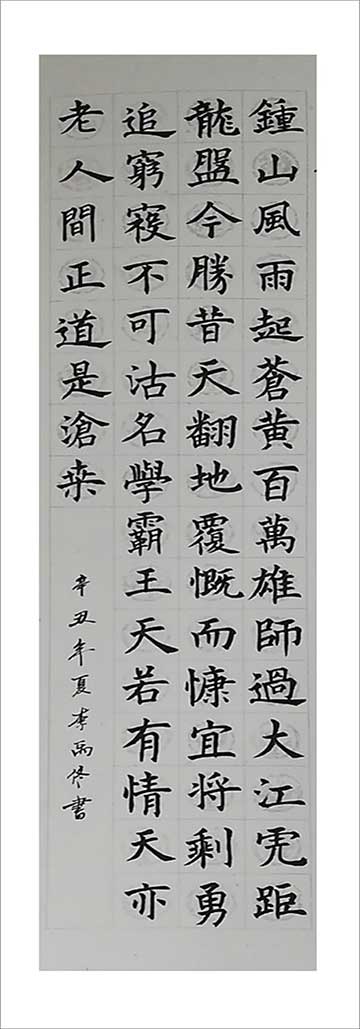 鍾山風雨起蒼黄百萬雄師過大江虎距
龍盤今勝昔天翻地覆慨而慷宜將剩勇
追窮寇不可沽名學霸王天若有情天亦
老人間正道是滄桑
辛丑年夏李丙佟書